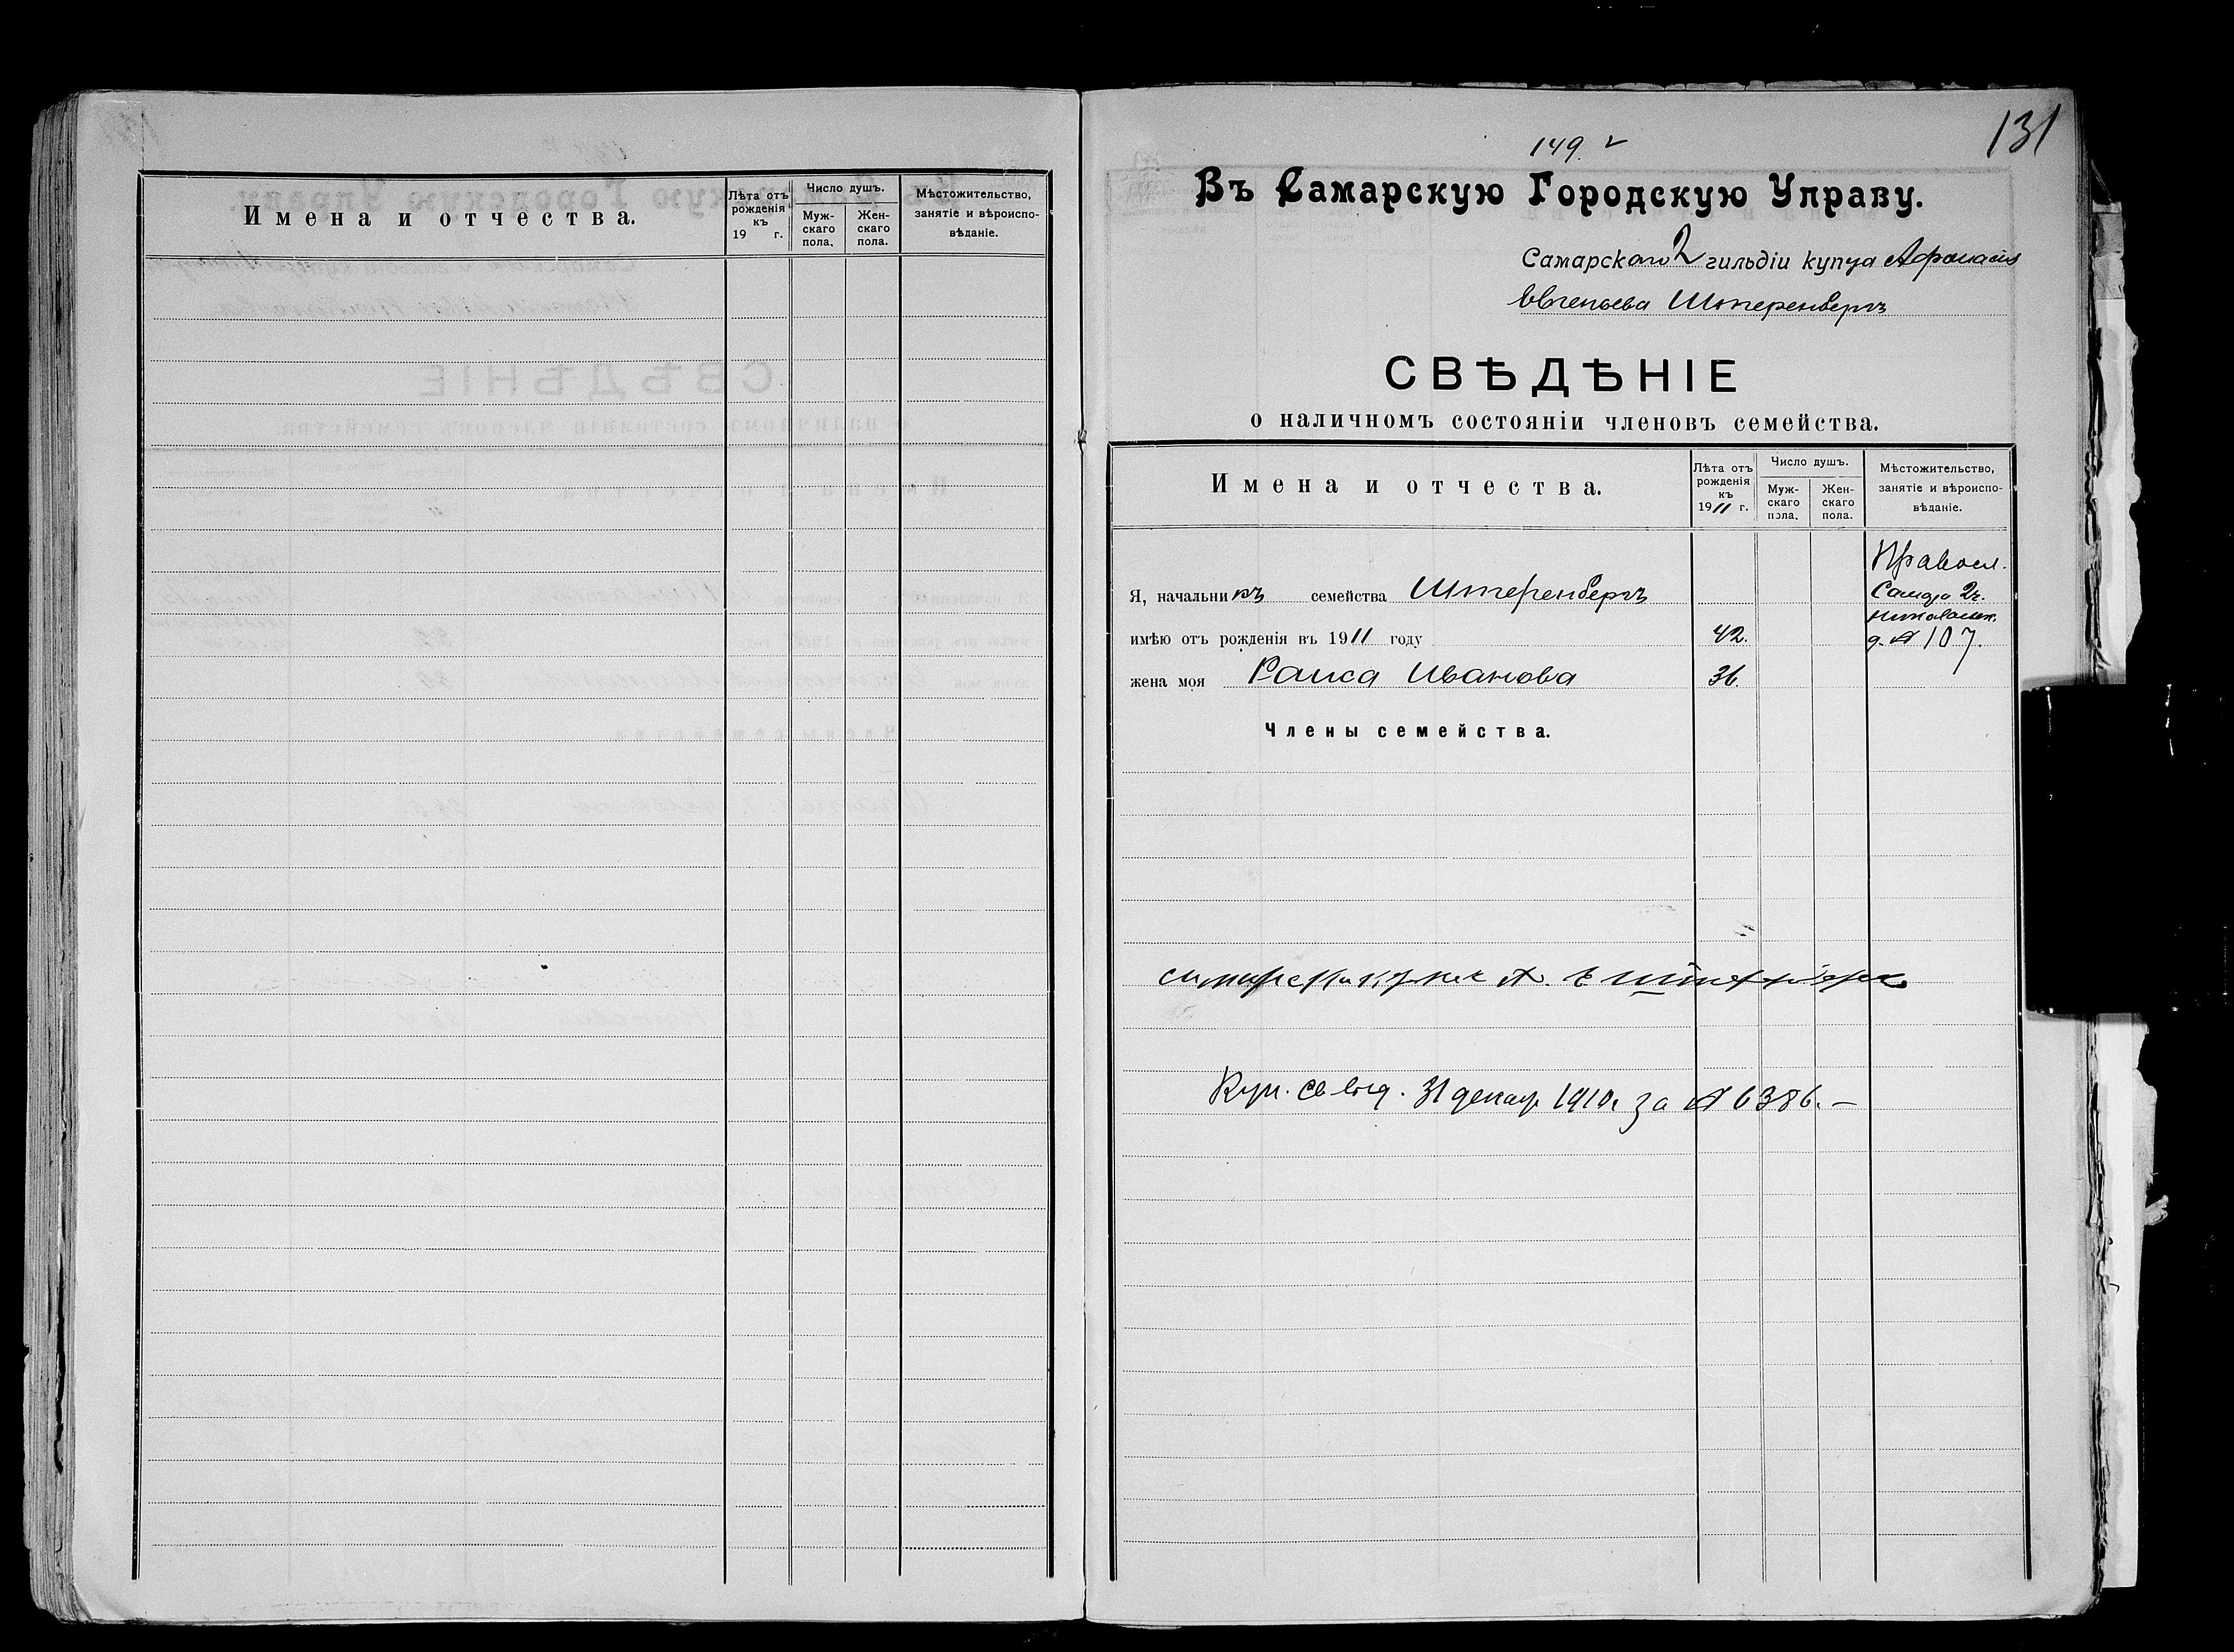 Имена и отчества.
Лѣта отъ рожденія къ 19 г.
Число душъ.
Мужскаго пола.
Женскаго пола.
Мѣстожительство, занятіе и вѣроисповѣданіе.
131
149.
Въ Самарскую Городскую Управу.
Самарскаго 2 гильдіи купца Афанасія
Евгеньева Штеренбергъ
СВѢДѢНІЕ
о наличномъ состояніи членовъ семейства.
Имена и отчества.
Лѣта отъ рожденія къ 1911 г.
Число душъ.
Мужскаго пола.
Женскаго пола.
Мѣстожительство, занятіе и вѣроисповѣданіе.
Правосл.
Я, начальникъ семейства Штеренбергъ
Самара 2ч.
Николаевск.
имѣю отъ рожденія въ 1911 году 42. д. № 107.
жена моя Раиса Иванова 36.
Члены семейства.
А. Е.
Куп. свид. 31 декаб. 1910 г. за № 6386. —